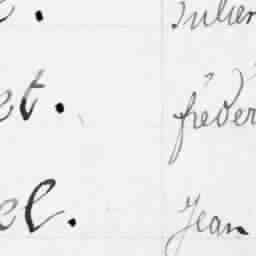 . Julien
et. fréder
el. Jean